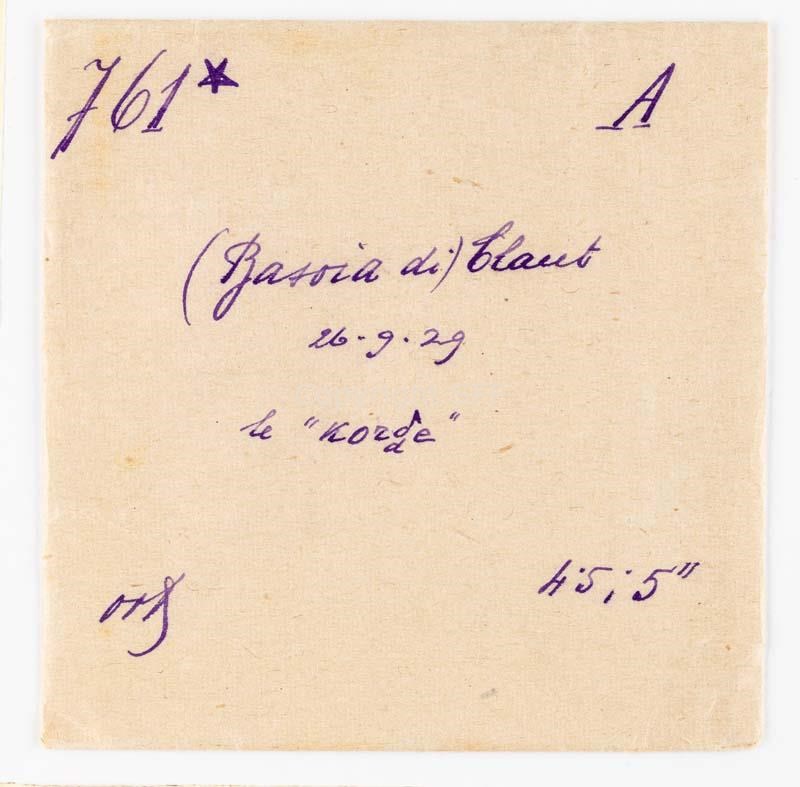 761* A
(Basoia di) Claut
26-9-29
le "Korde"
45; 5"